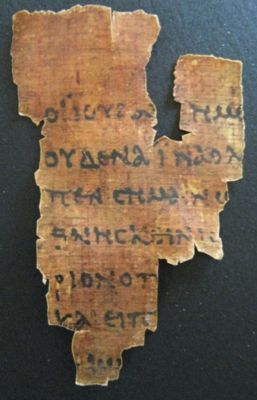 ΟΙ ΙΟΥΔΑ ΗΜΕ
ΟΥΔΕΝΑ ΙΝΑ Ο Λ
ΠΕΝ CΗΜΑΙΝΩ
ΘΝΗCΚΕΙΝ Ι
ΡΙΟΝ Ο Π
ΚΑΙ ΕΙΠ